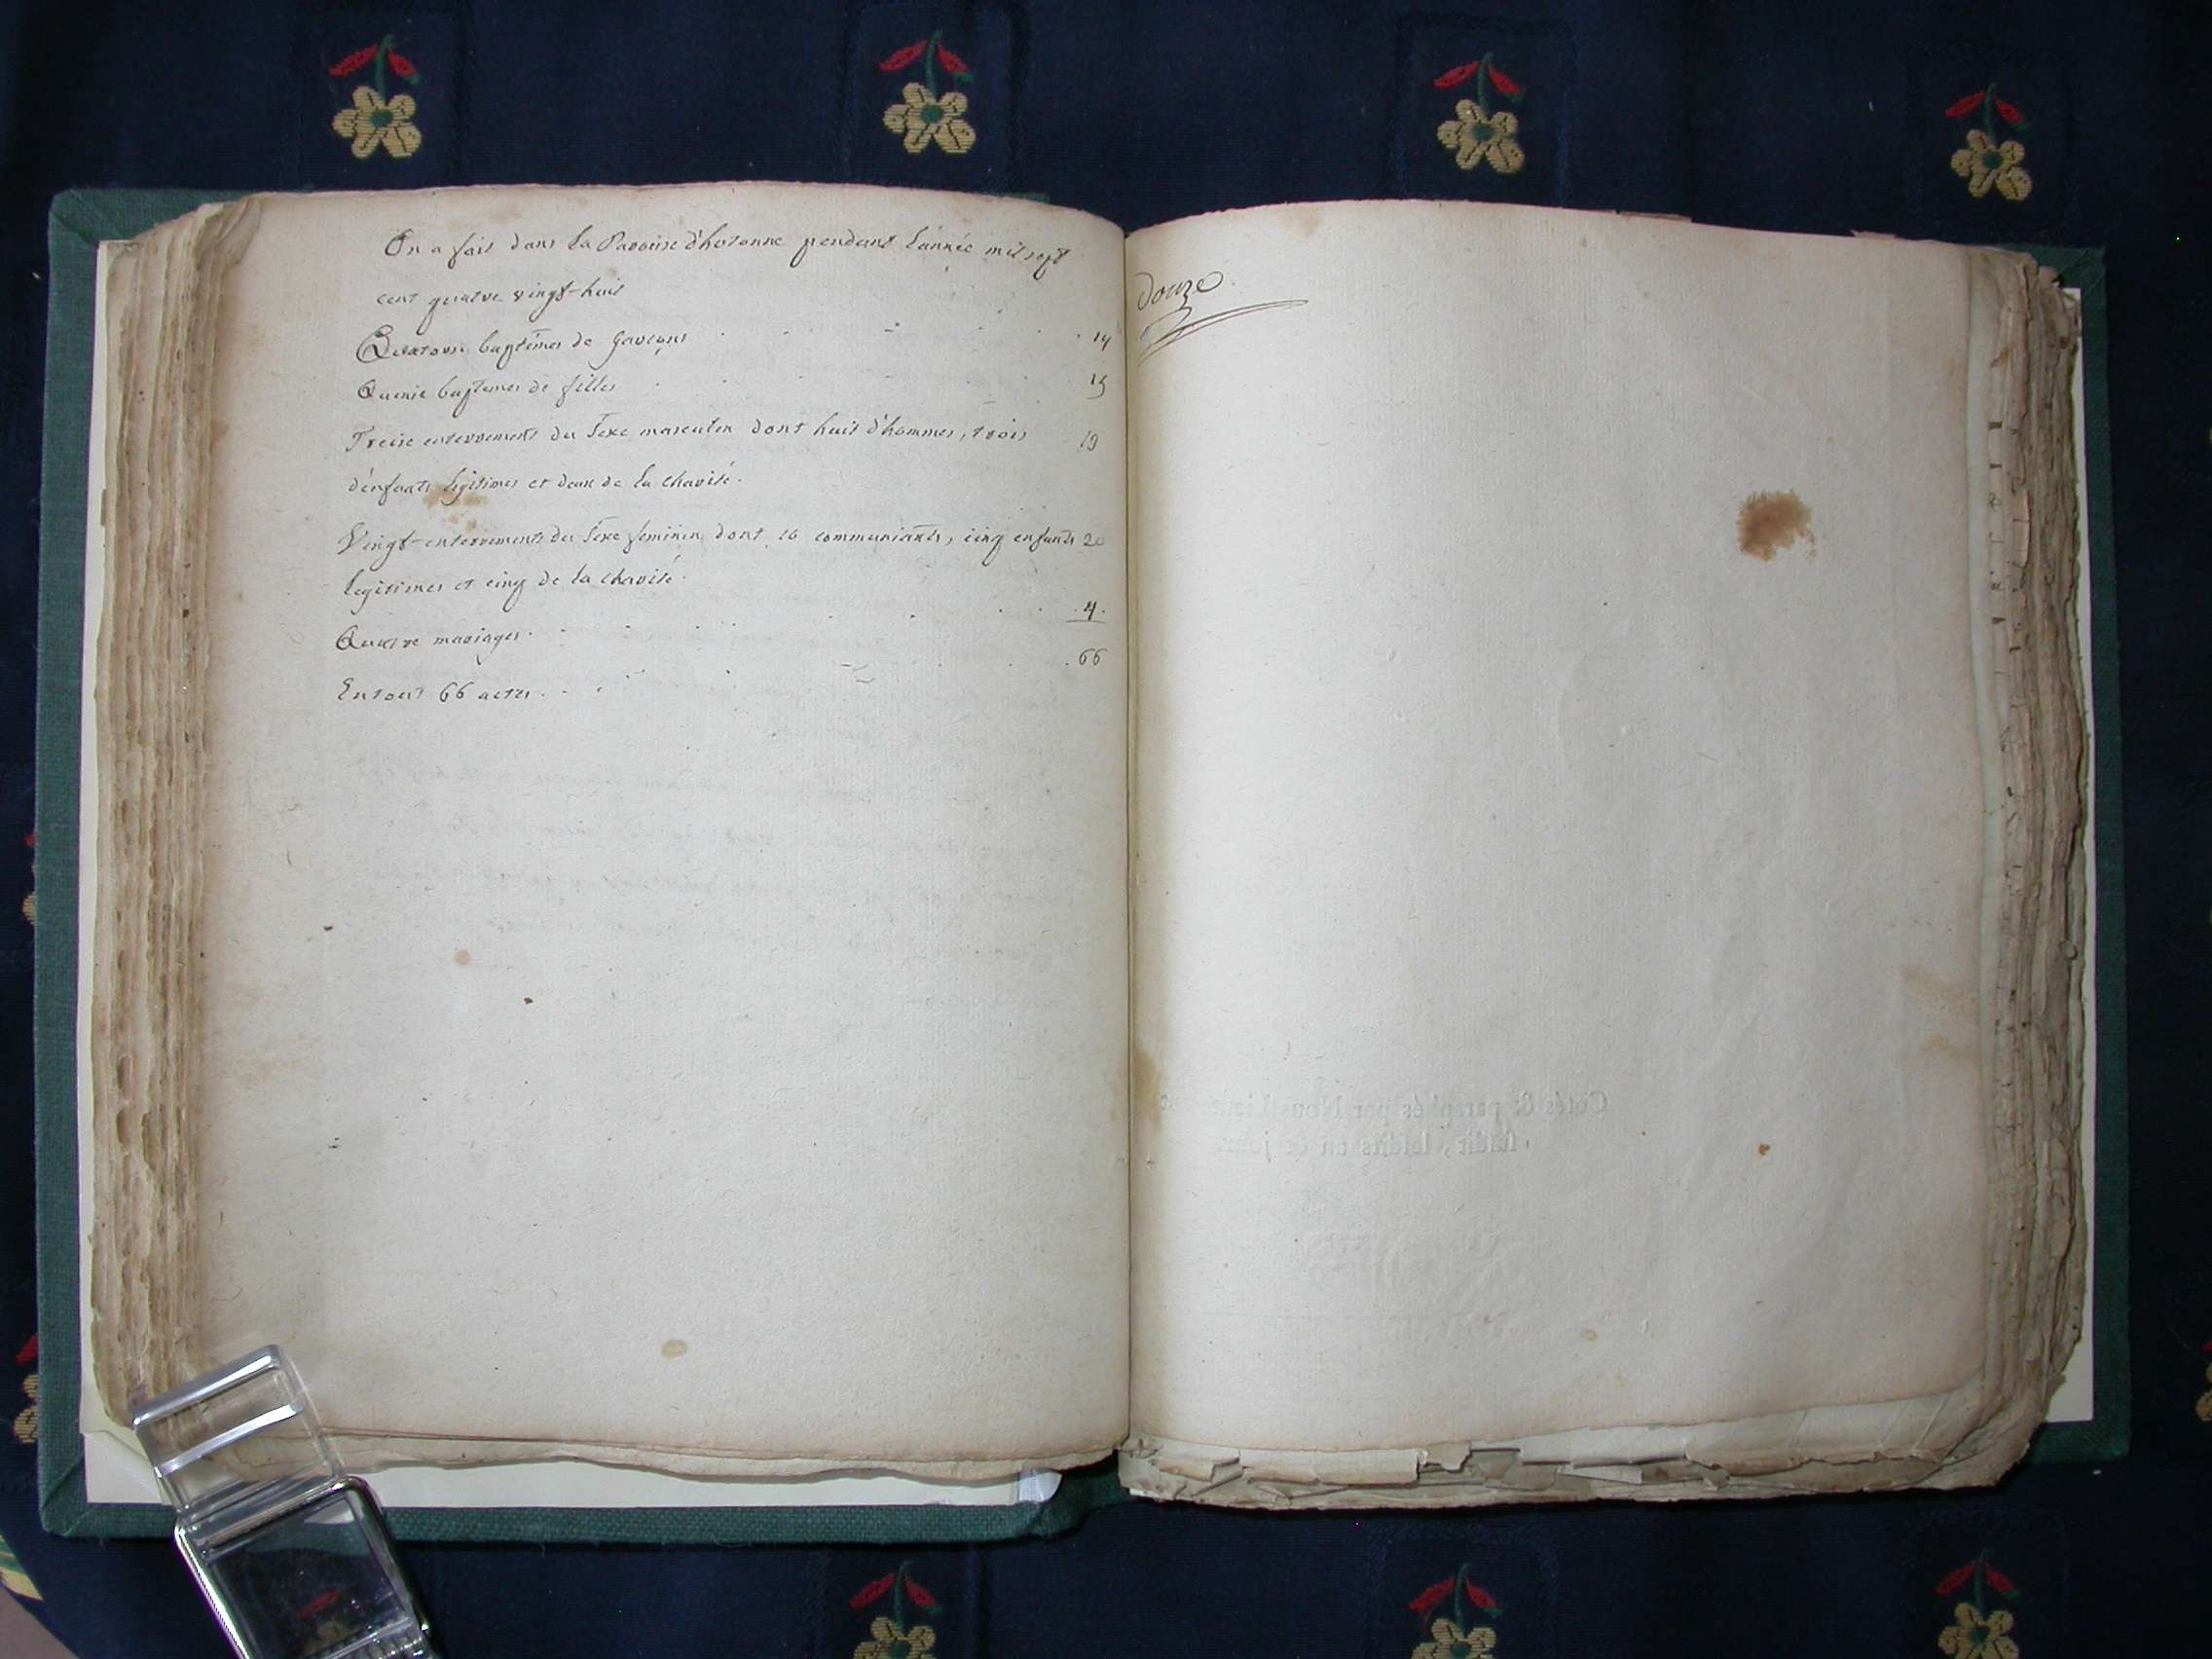 On a fait dans la Paroisse d'hotonne pendant l'année mil sept
cent quatre vingt-huit
Quatorze baptêmes de garçons . . . . 14
Quinze baptemes de filles . . . . 15
Treize enterrements du Sexe masculin dont huit d'hommes, trois 13
d'enfants legitimes et deux de la charité.
Vingt-enterrements du Sexe feminin dont 10 communiants, cinq enfants 20
legitimes et cinq de la charité.
Quatre mariages . . . . 4.
66
En tout 66 actes . . .
douze
Cotés & paraphés par Nous
susdit, lesdits an & jour